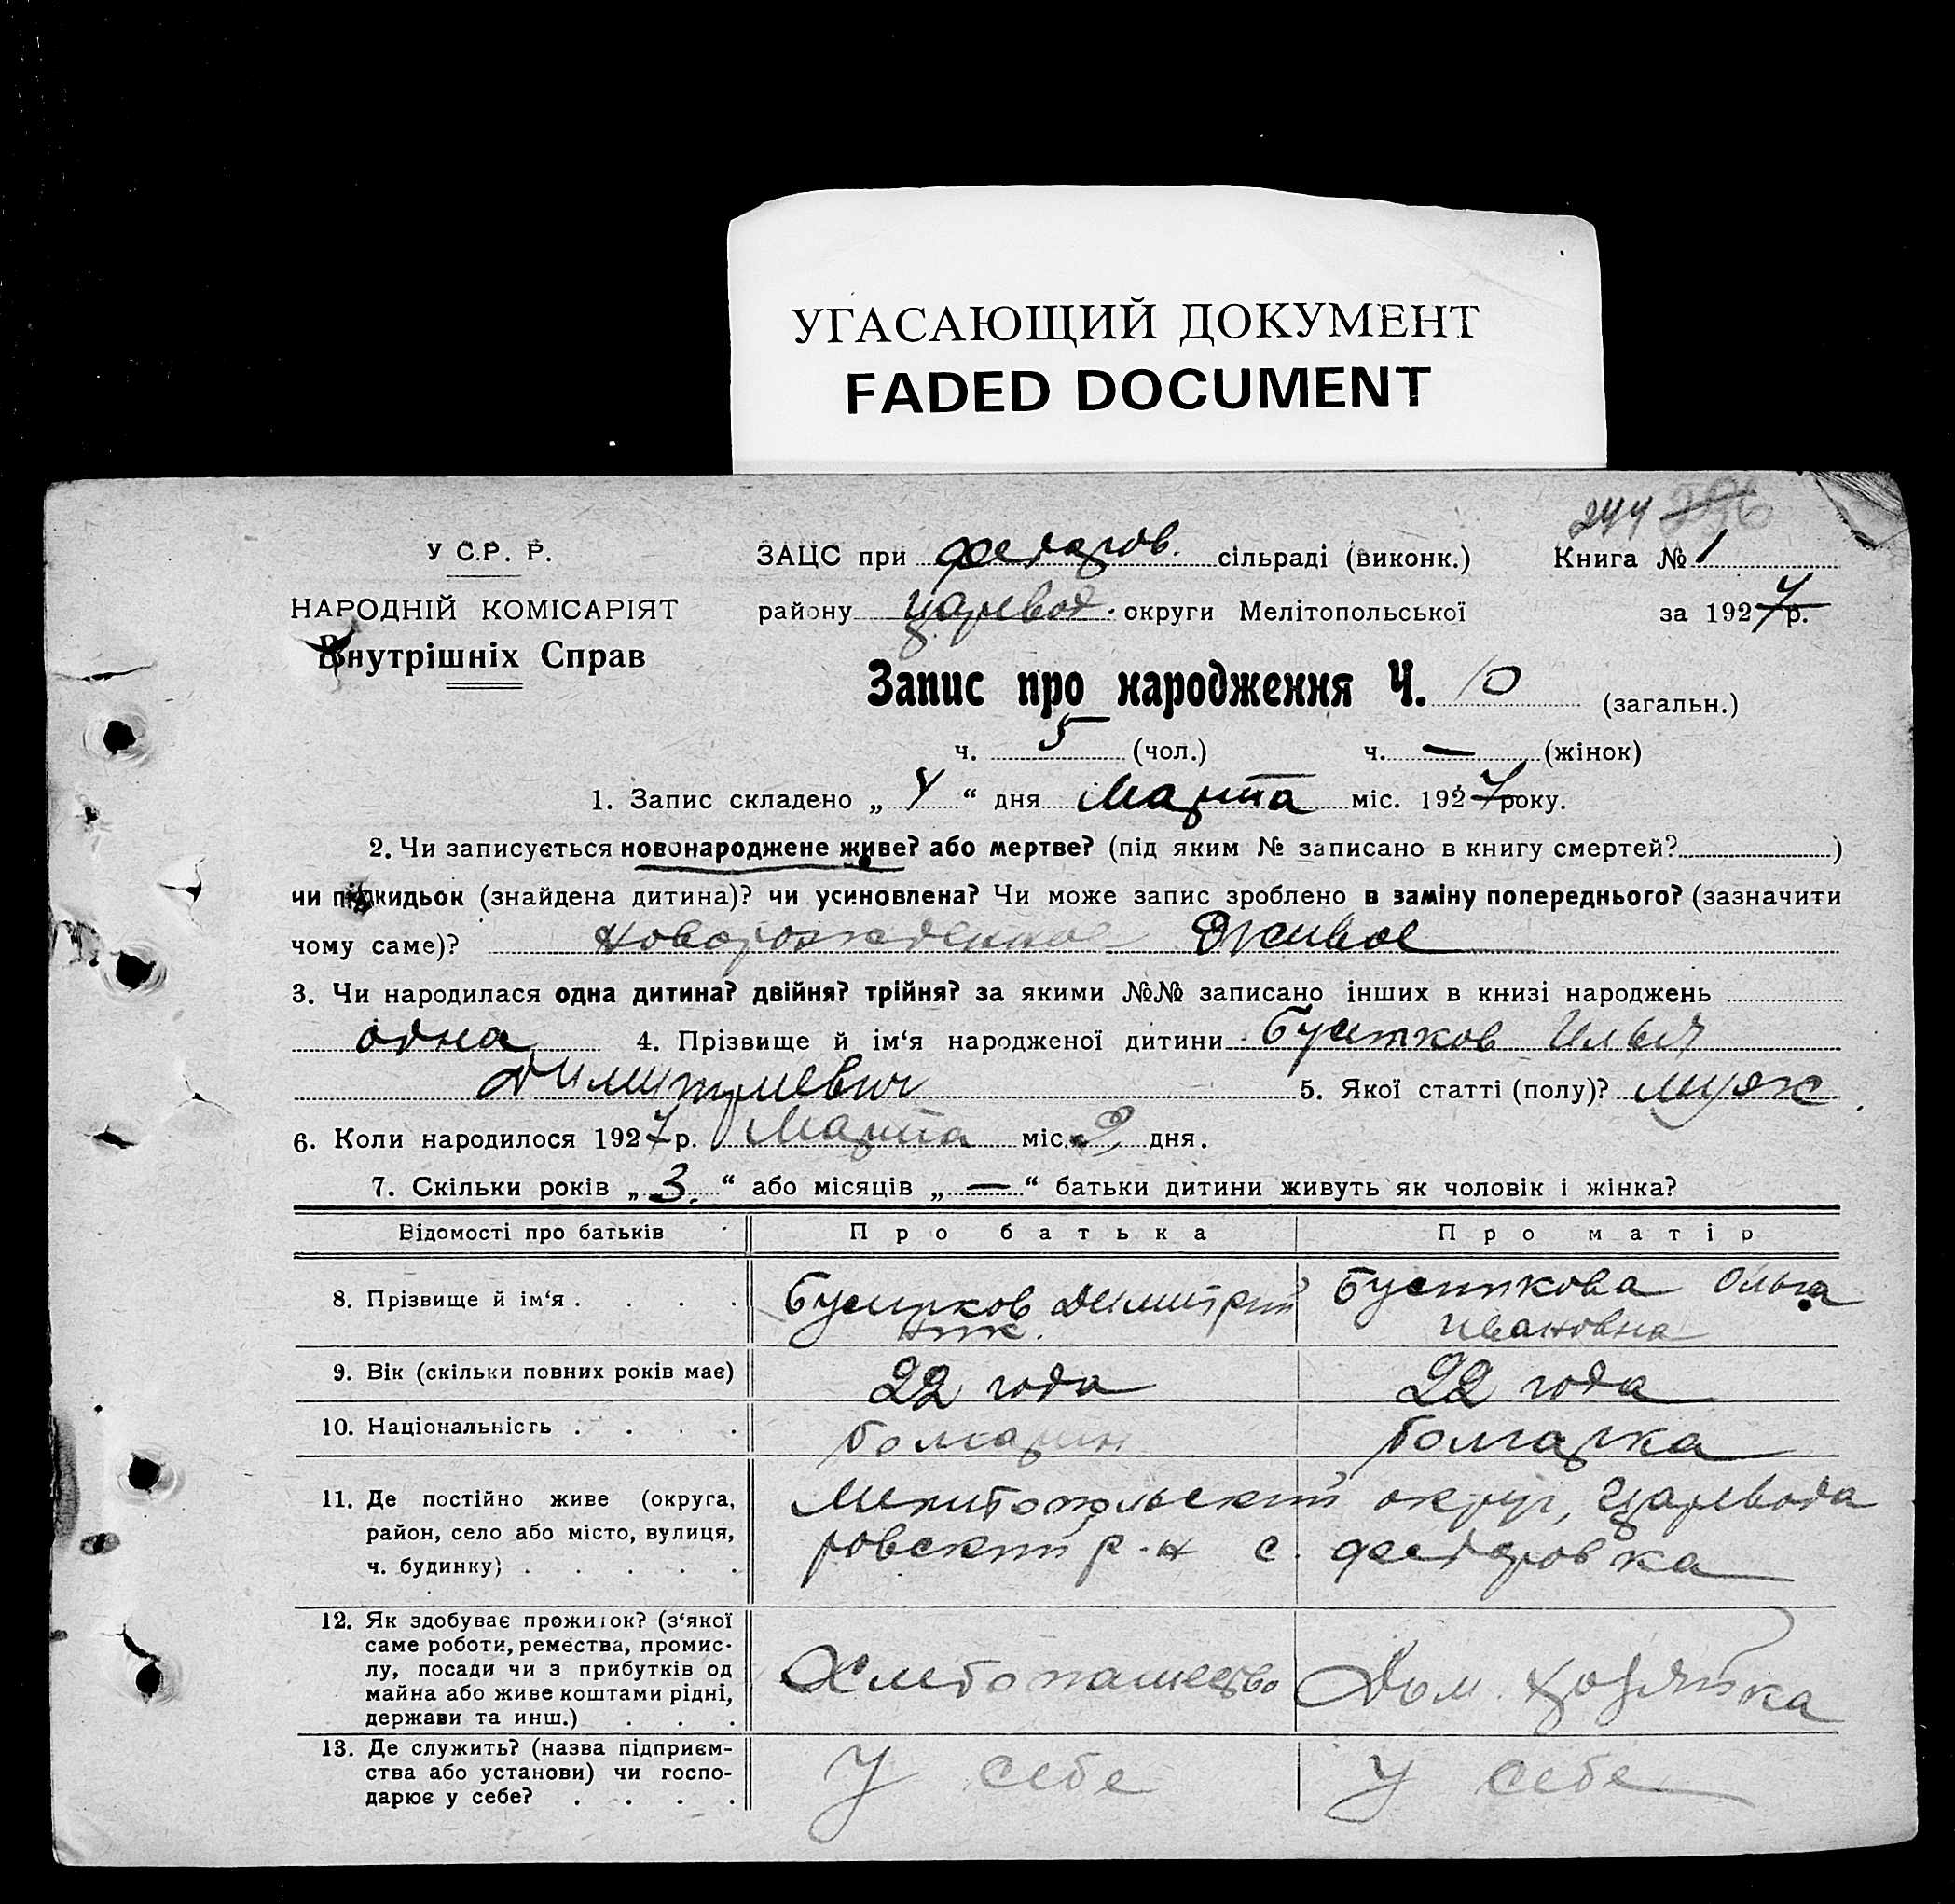 УГАСАЮЩИЙ ДОКУМЕНТ
FADED DOCUMENT
244
У С.Р. Р.
ЗАЦС при Федоров. сільраді (виконк.) Книга № 1
НАРОДНІЙ КОМІСАРІЯТ
району Царевод. округи Мелітопольської за 1927 р.
Внутрішніх Справ
Запис про народження Ч. 10 (загальн.)
ч. 5 (чол.) ч. — (жінок)
1. Запис складено „ 4 “ дня Марта міс. 1927 року.
2. Чи записується новонароджене живе? або мертве? (під яким № записано в книгу смертей? )
чи підкидьок (знайдена дитина)? чи усиновлена? Чи може запис зроблено в заміну попереднього? (зазначити
чому саме)? Новорожденное Живое
3. Чи народилася одна дитина? двійня? трійня? за якими №№ записано інших в книзі народжень
одна 4. Прізвище й ім‘я народженої дитини Илья
Димитриевич 5. Якої статті (полу)? муж
6. Коли народилося 1927 р. Марта міс. 2 дня.
7. Скільки років „ 3. “ або місяців „ — “ батьки дитини живуть як чоловік і жінка?
Відомості про батьків Про батька Про матір
8. Прізвище й ім‘я . . . . Димитрий Ольга
Ивановна
9. Вік (скільки повних років має) 22 года 22 года
10. Національність . . . . болгарин болгарка
11. Де постійно живе (округа, район, село або місто, вулиця, ч. будинку) . . . . . Мелитопольский округ, Царевода
ровский р-н с. Федоровка
12. Як здобуває прожиток? (з‘якої
саме роботи, ремества, промис-
лу, посади чи з прибутків од
майна або живе коштами рідні,
держави та инш.) . . . Хлебопашество Дом. хозяйка
13. Де служить? (назва підприєм-
ства або установи) чи госпо-
дарює у себе? . . . . У себе У себе